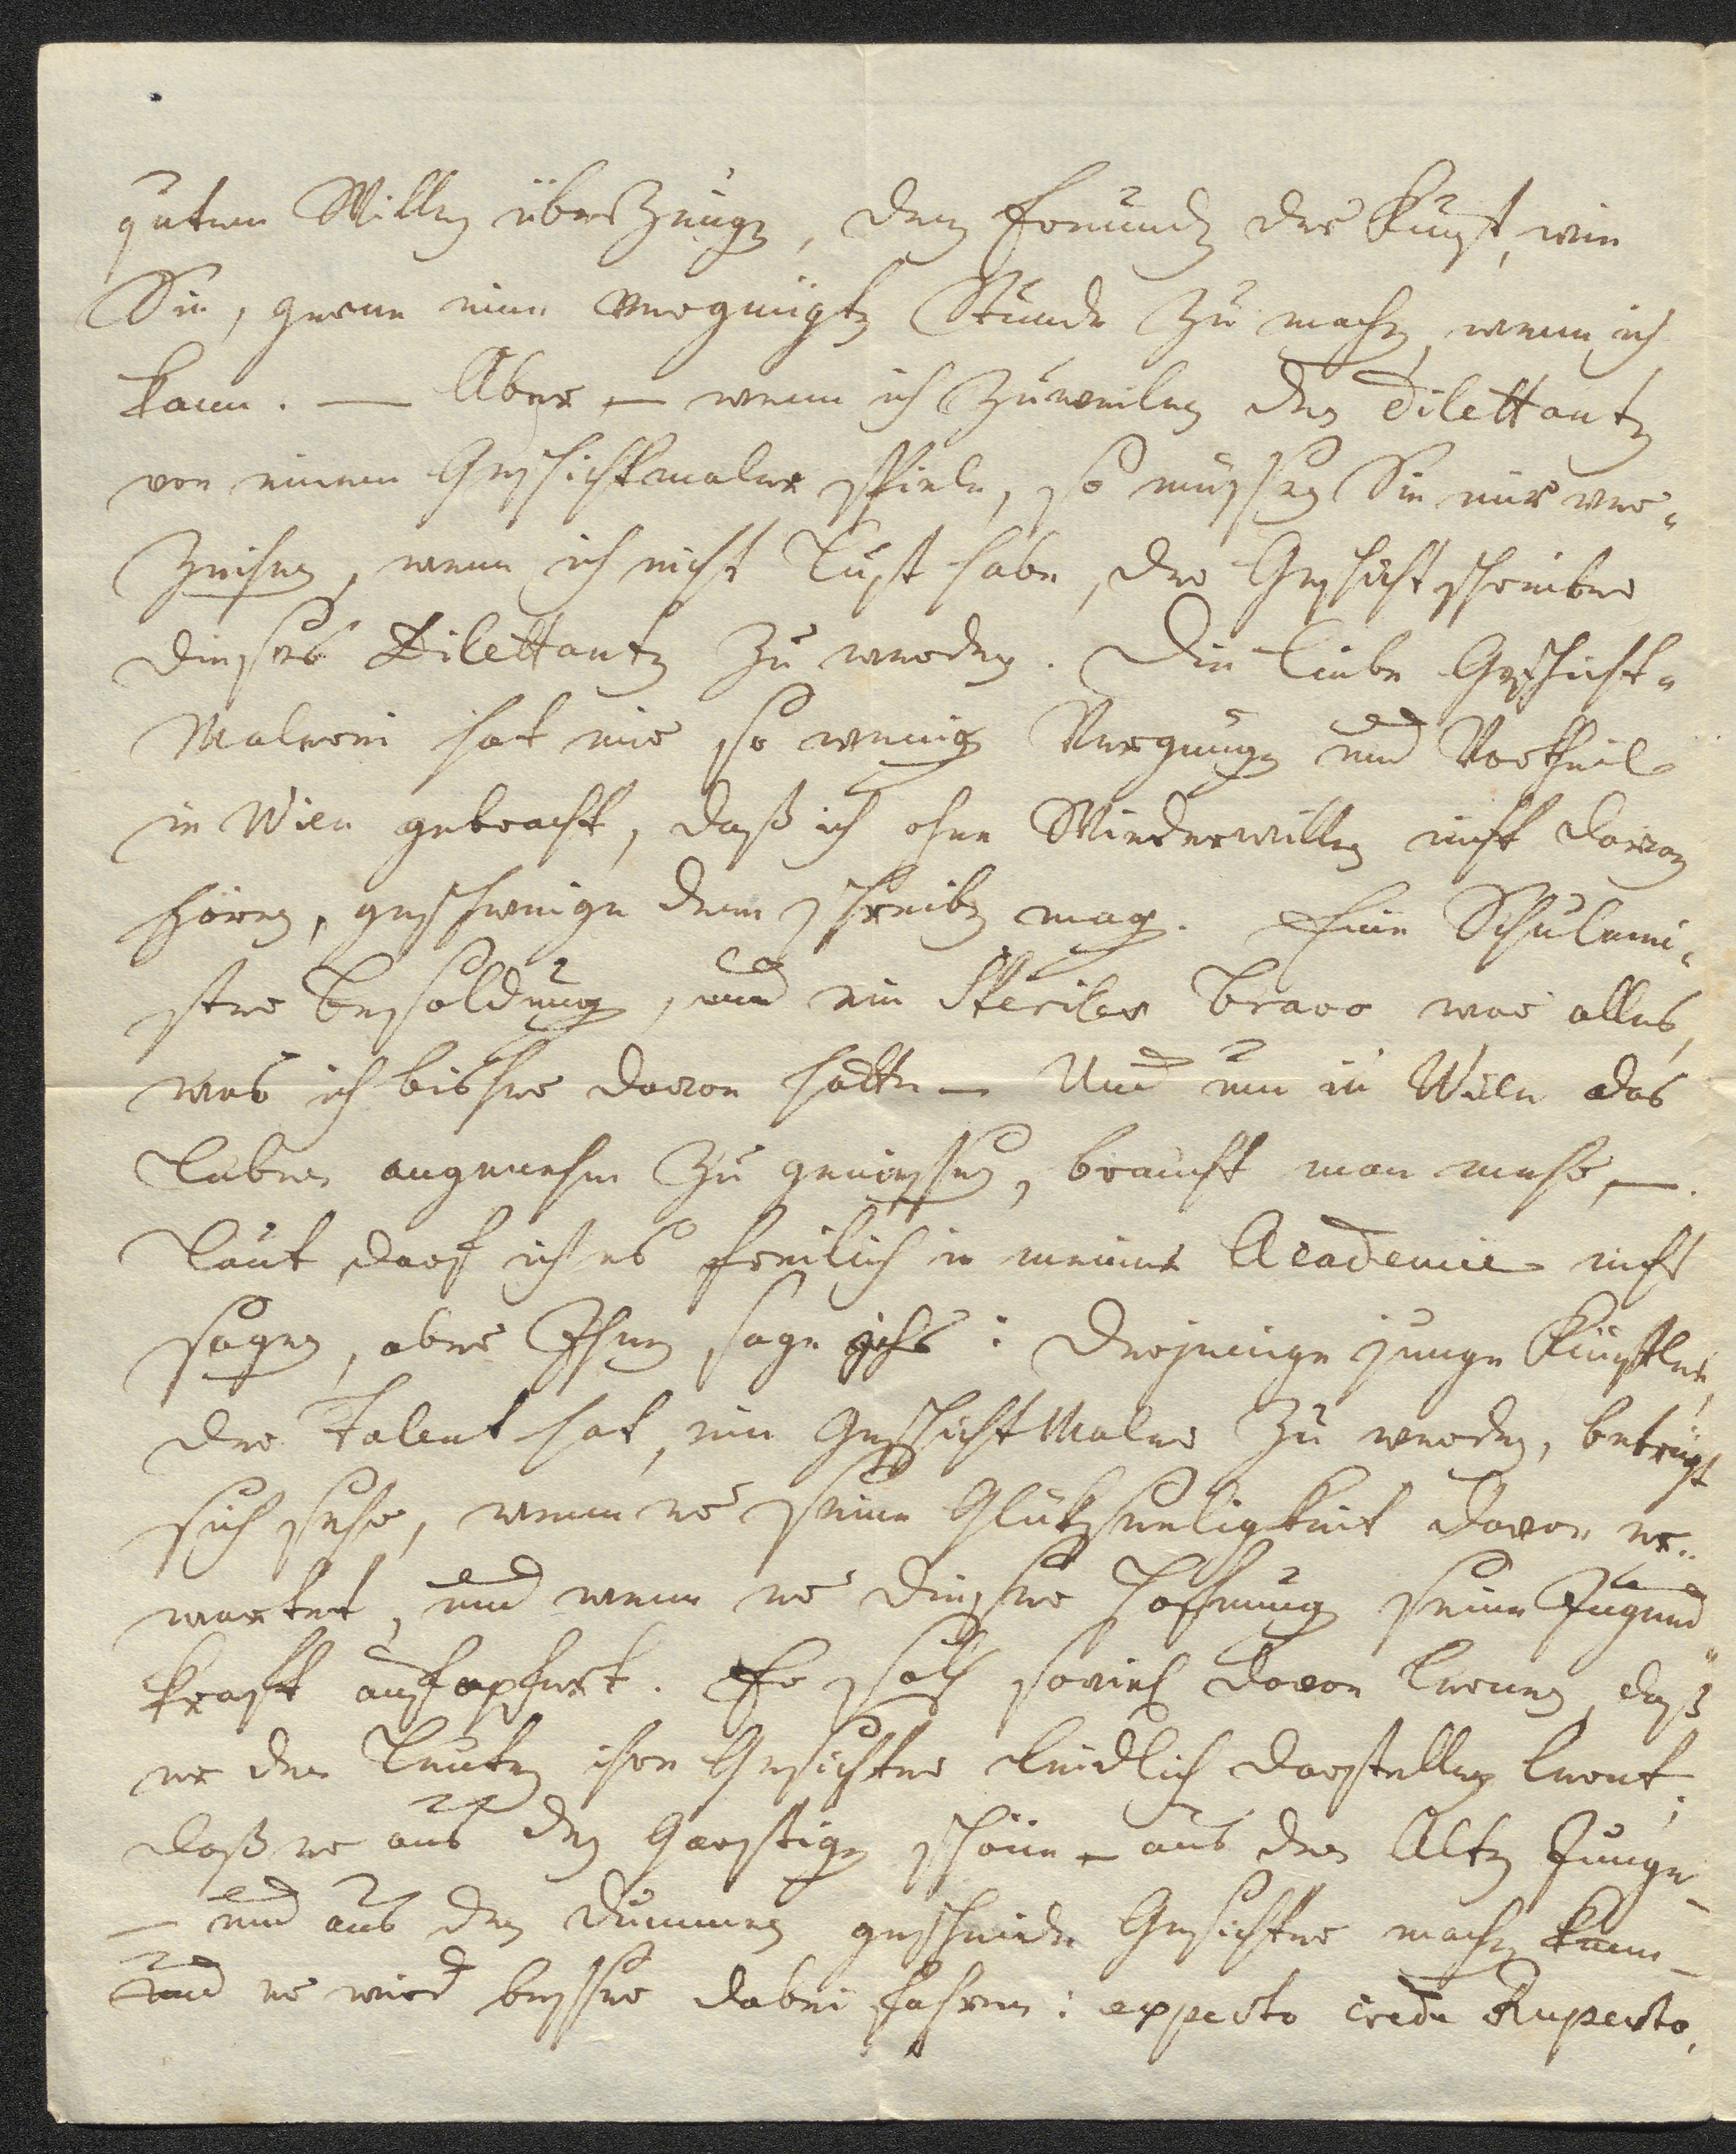 gutem Willen überzeugen, den Freunden der Kunst, wie
Sie, gerne eine vergnügte Stunde zu machen, wenn ich
kann. — Aber — wenn ich zuweilen den Dilettanten
von einem Geschichtmaler spiele, so müssen Sie mir ver„
zeihen, wenn ich nicht Lust habe, der Geschichtschreiber
dieses Dilettanten zu werden. Die liebe Geschicht„
Malerei hat mir so wenig Vergnügen und Vortheil
in Wien gebracht, daß ich ohne Wiederwillen nicht davon
hören, geschweige denn schreiben mag. Eine Schulmei„
ster besoldung, und ein Steriler bravo war alles,
was ich bisher davon hatte — Und um in Wien das
Leben angenehm zu geniessen, braucht man mehr, —.
Laut darf ich es freilich in meiner Academie nicht
sagen, aber Ihnen sage ichs: Derjenige junge Künstler,
der Talent hat, ein Geschicht Maler zu werden, betrügt
sich sehr, wenn er seine Glükseeligkeit davon er„
wartet, und wenn er dieser Hofnung seine Jugend„
kraft aufopfert. Er soll soviel davon lernen, daß
er den Leuten ihre Gesichter leidlich darstellen lernt;
daß er aus den Garstigen schöne — aus den Alten Junge —
— und aus den Dummen gescheide Gesichter machen kann —
und er wird besser dabei fahren: experto crede Ruperto.